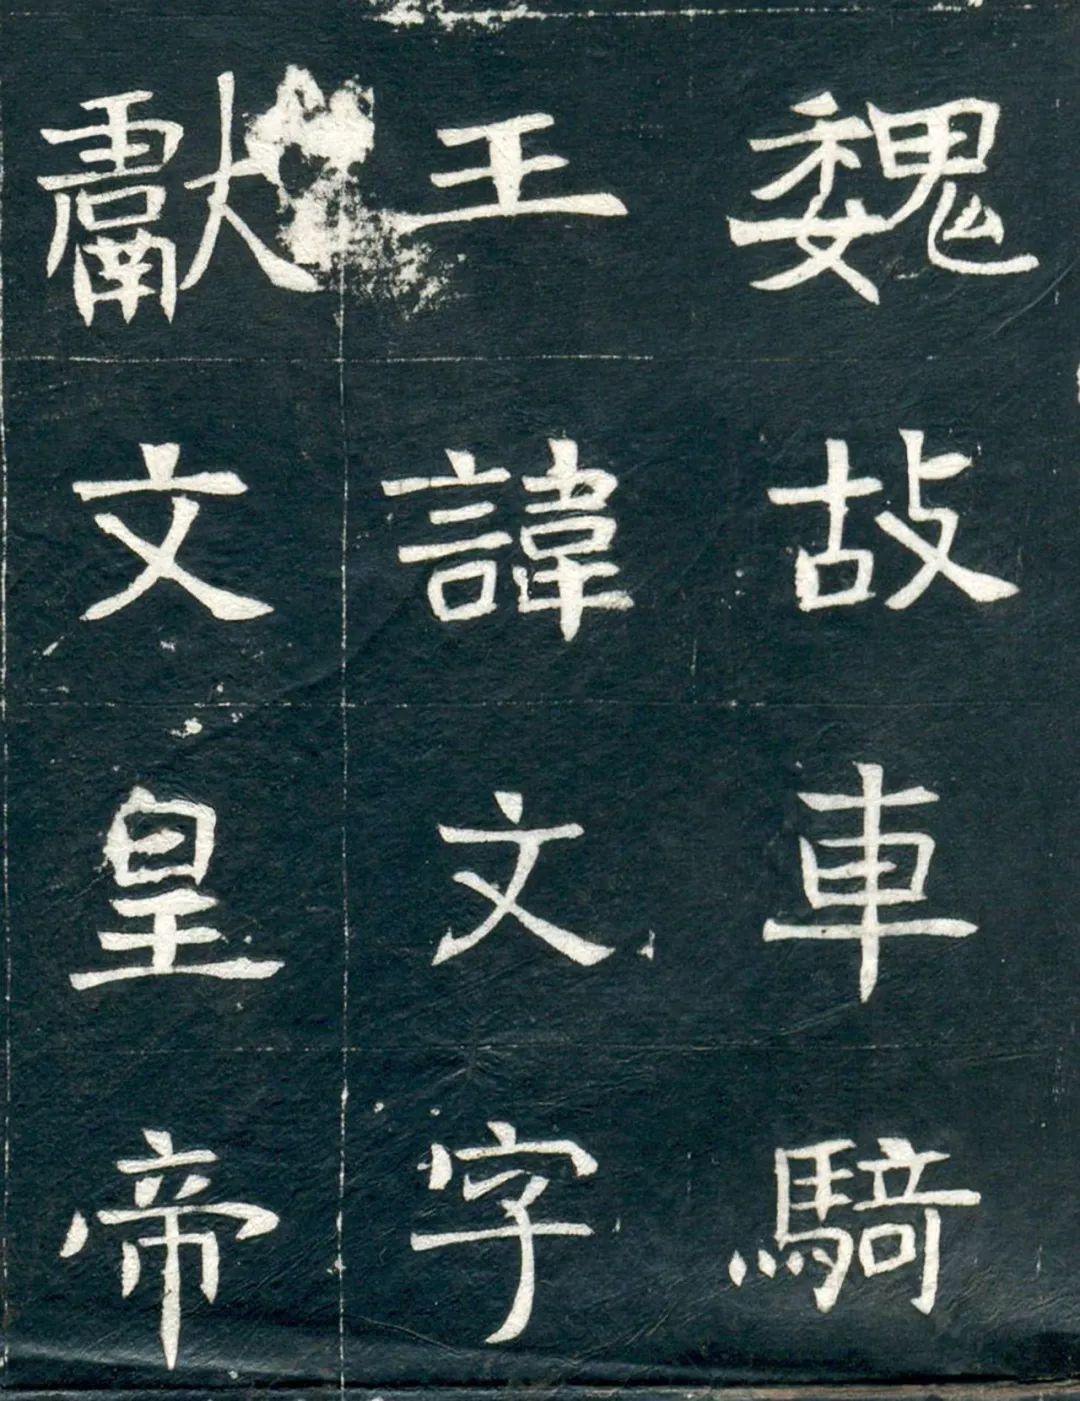 魏故車騎
王諱文字
獻文皇帝